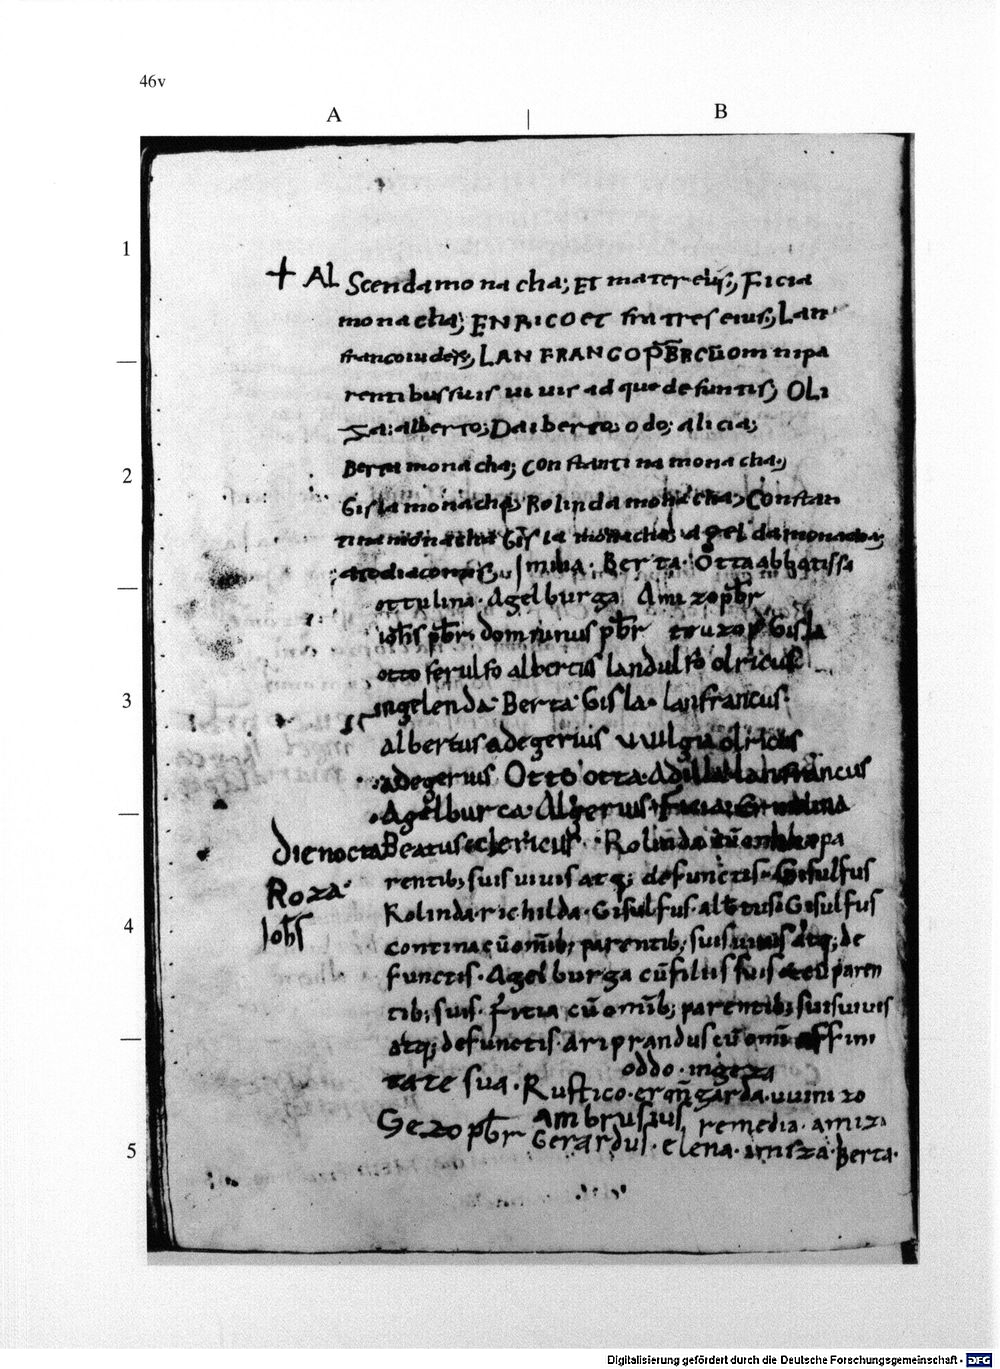 46v
A | B
1
+ Al Scenda mo na cha; Et mater eius; Ficia
mona cha; ENRICO et fratres eius; Lan
franco iudex; LANFRANCO pb̄r cū omni pa
rentibus suis vivis ad que defuntis; Oli
za: alberto; Daiberto; odo; alicia;
2
Berta mona cha; Constanti na mona cha;
Gisla mona cha; Rolinda mona cha; Constan
tina monacha Gisla monacha; agelda monacha;
Imilia · Berta · Otta abbatissa
ottulina · Agelburga Amizo pb̄r
ioh̄s pb̄r · dominius pb̄r teuzo p̄ Gisla
otto ferulfo albertus landulfo olricus
3
ingelenda · Berta · Gisla · lanfrancus ·
albertus adegerius olricus
· adegerius Otto otta · Adilla lanfrancus
· Agelburca · Algerius ·
Dienocta Beatus clericus · Rolinda cū omnib; pa
Roza · rentib; suis vivis atq; defunctis · Gisulfus
4
Ioh̄s Rolinda · richilda · Gisulfus · alb̄tus · Gisulfus
contina cū omīb; parentib; suis vivis atq; de
functis · Agelburga cū filiis suis et cū paren
tib; suis · fritia cū omīb; parentib; suis vivis
atq; defunctis · Ariprandus cū omī affini
oddo · ingeza
tate sua · Rustico · ermēgarda · uuinizo
5
Gezo pb̄r Ambrusius remedia · amizi
Gerardus · elena · imiza · Berta ·
Digitalisierung gefördert durch die Deutsche Forschungsgemeinschaft - DFG